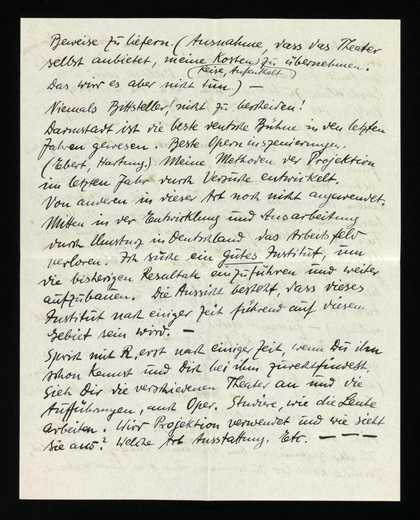 Beweise zu liefern. (Ausnahme, dass das Theater
selbst anbietet, meine Kosten zu übernehmen.
(Reise, Aufenthalt)
Das wird es aber nicht tun) —
Niemals Bittsteller, nicht zu bescheiden!
Darmstadt ist die beste deutsche Bühne in den letzten
Jahren gewesen. Beste Operninszenierungen.
(Ebert, Hartung.) Meine Methoden der Projektion
im letzten Jahr durch Versuche entwickelt.
Von anderen in dieser Art noch nicht angewendet.
Mitten in der Entwicklung und Ausarbeitung
durch Umsturz in Deutschland das Arbeitsfeld
verloren. Ich suche ein gutes Institut, um
die bisherigen Resultate einzuführen und weiter
aufzubauen. Die Aussicht besteht, dass dieses
Institut nach einiger Zeit führend auf diesem
Gebiet sein wird. —
Sprich mit R. erst nach einiger Zeit, wenn Du ihn
schon kennst und Dich bei ihm zurechtfindest.
Sieh Dir die verschiedenen Theater an und die
Aufführungen, auch Oper. Studiere, wie die Leute
arbeiten. Wird Projektion verwendet und wie sieht
sie aus? Welche Art Ausstattung. Etc. — — —